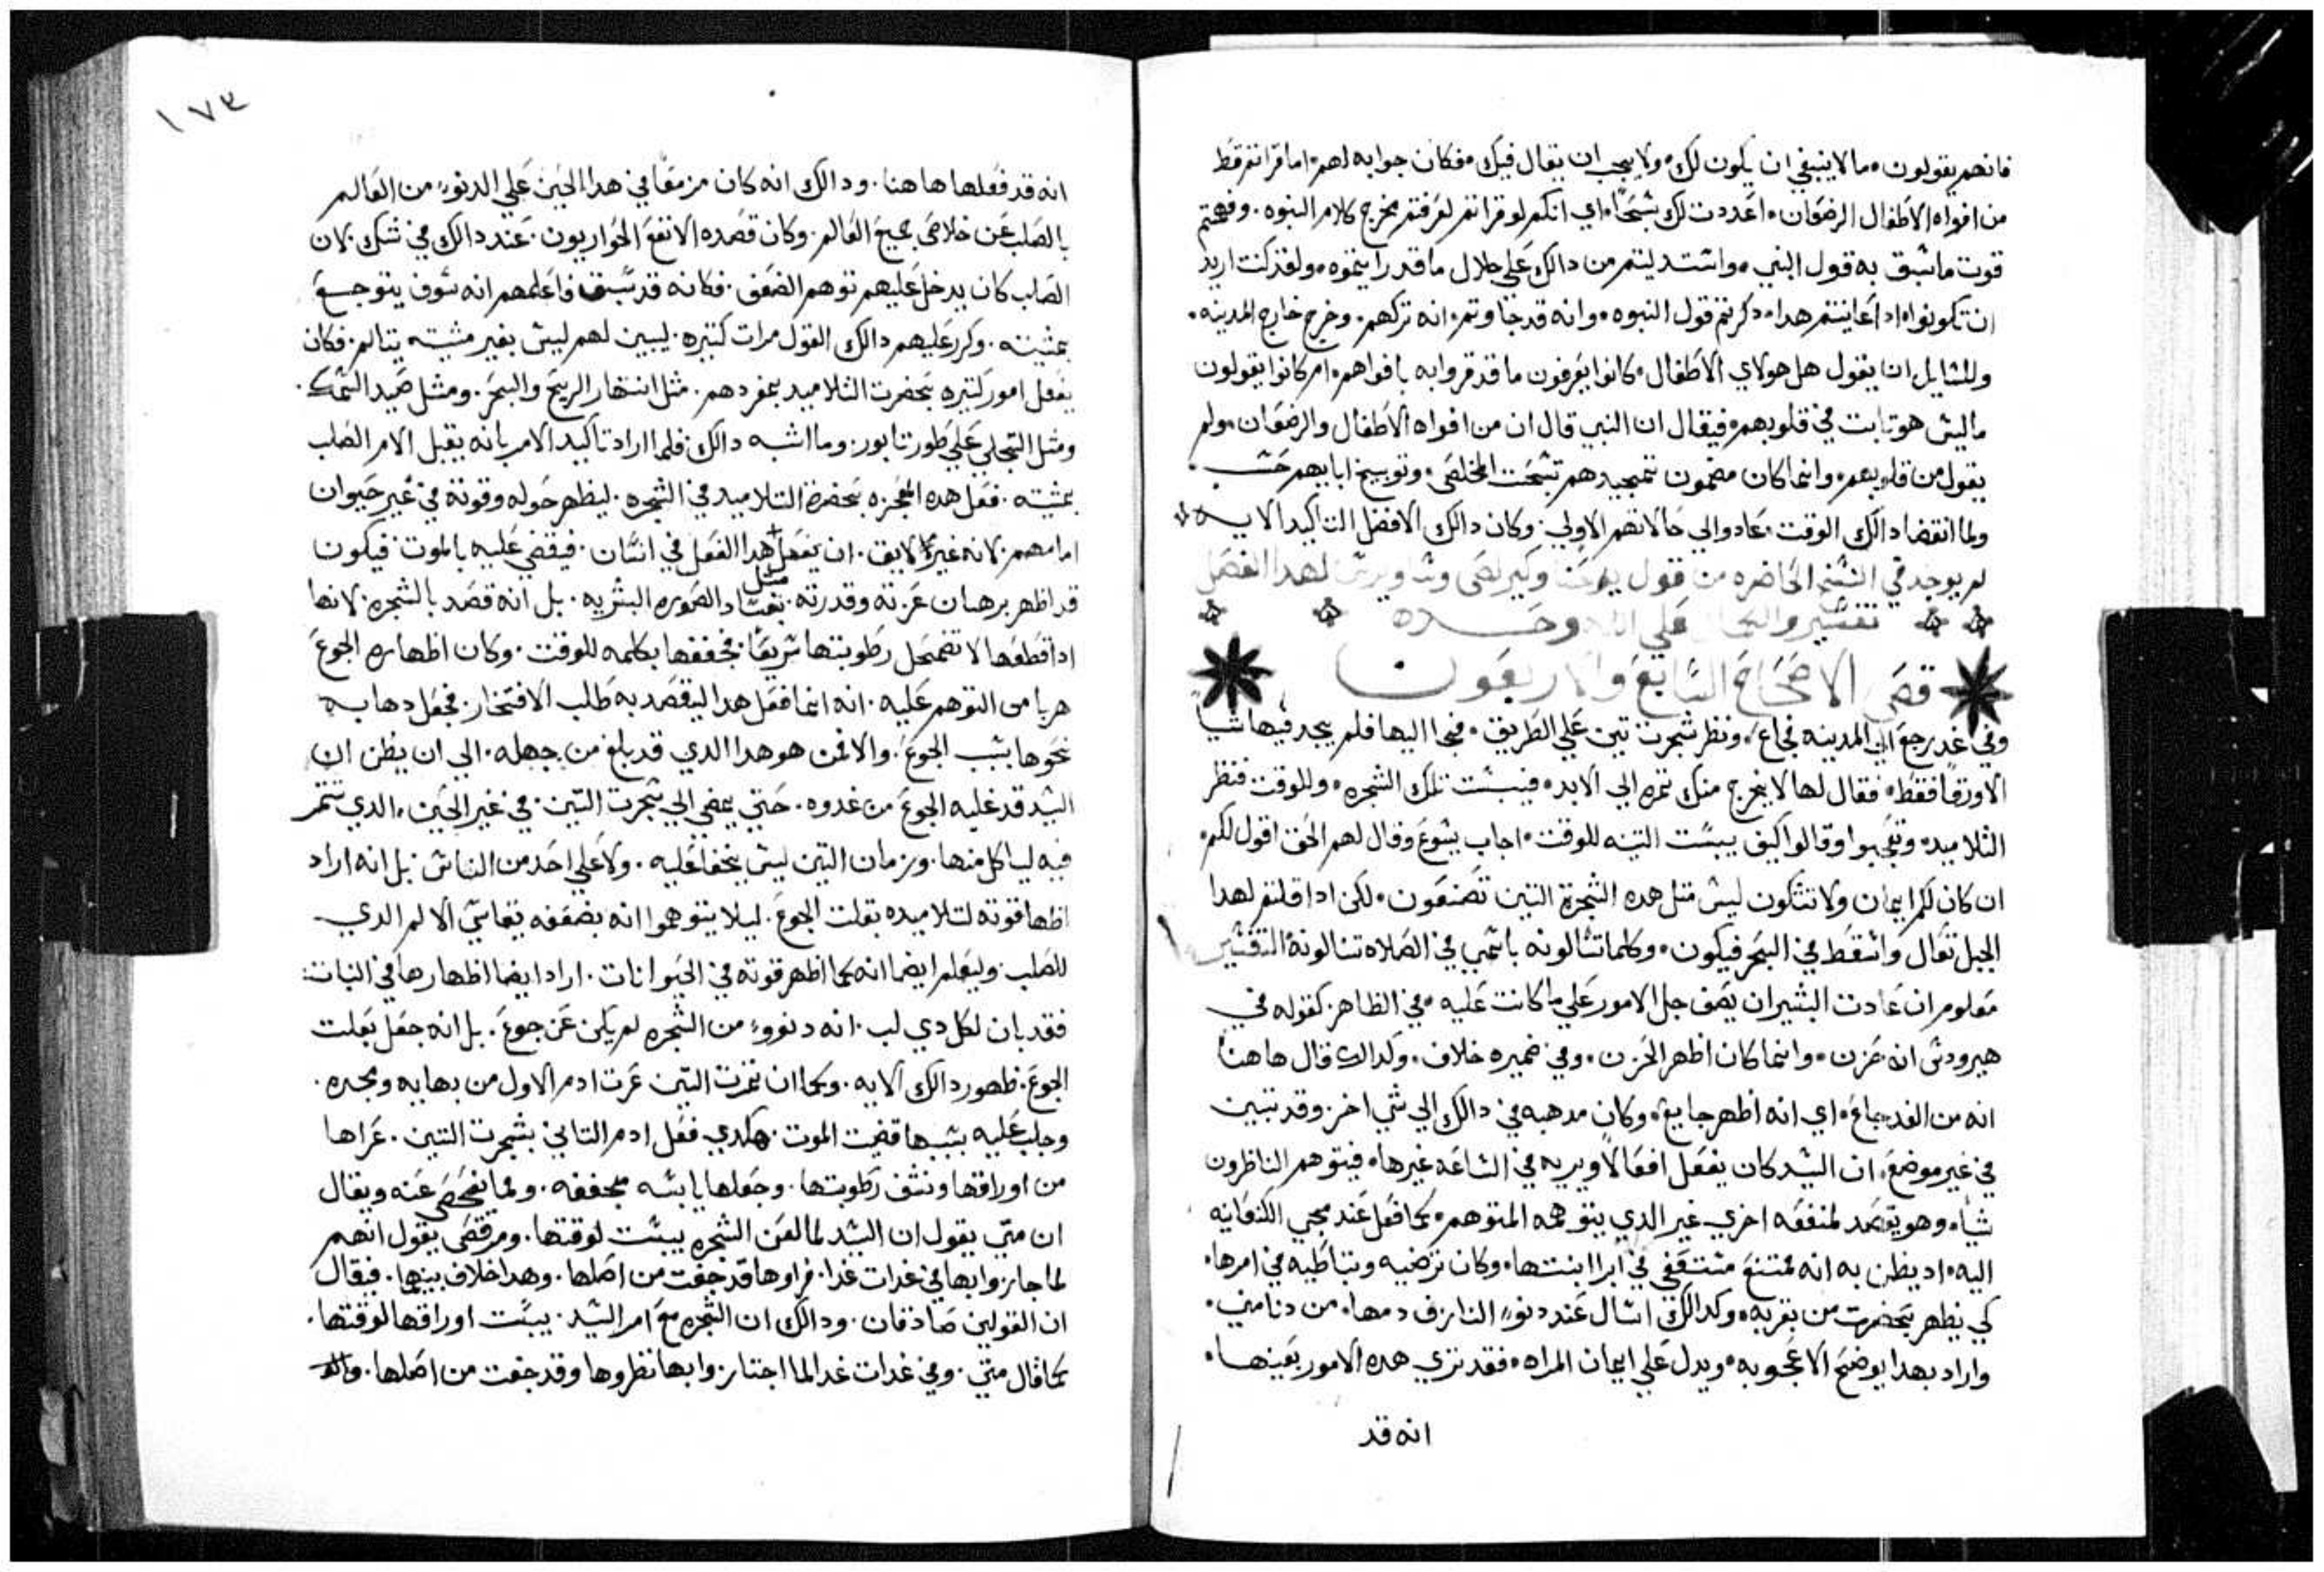 فانهم يقولون ما لا ينبغي ان يكون لك ولا يجب ان يقال فيك فكان جوابه لهم اما قراتم قط
من افواه الاطفال الرضعان اعددت لك تشبحًا اي انكم لو قراتم لعرفتم مخرج كلام النبوه وفهمتم
قوت ما شبق به قول النبي واشتدليتم من دالك علي جلال ما قد رايتموه ولقد كنت اريد
ان تكونوا ادا عاينتم هدا دكرتم قول النبوه وانه قد جاوتم انه تركهم وخرج خارج المدينه
وللشايل ان يقول هل هولاي الاطفال كانوا يعرفون ما قد قروا به بافواههم ام كانوا يقولون
ما ليش هو تابت في قلوبهم فيقال ان النبي قال ان من افواه الاطفال والرضعان ولم
يقول من قلوبهم وانما كان مضمون تمجيدهم تشبحت المخلص وتوبيخ ابايهم حشب
ولما انقضا دالك الوقت عادوا الي حالاتهم الاولي وكان دالك الافضل التاكيد الايه
لم يوجد في النشخ الحاضره من قول يوحنا وكيرلص وشاويرش لهدا الفصل
تفشير والتكال علي الله وحده
قص الاصحاح الشابع والاربعون
وفي غد رجع الي المدينه فجاع ونظر شجرت تين علي الطريق فجا اليها فلم يجد فيها شيا
الا ورقًا فقط فقال لها لا يخرج منك تمره الي الابد فيبشت تلك الشجره وللوقت فنظر
التلاميد وتعجبوا وقالوا كيف يبشت التينه للوقت اجاب يشوع وقال لهم الحق اقول لكم
ان كان لكم ايمان ولا تشكون ليش متل هده الشجرة التين تصنعون لكن ادا قلتم لهدا
الجبل تعال واشقط في البحر فيكون وكلما تشالونه باشمي في الصلاه تنالونه التفشير
معلوم ان عادت البشير ان يصف جل الامور علي ما كانت عليه في الظاهر كقوله في
هيرودش انه حزن وانما كان اظهر الحزن وفي ضميره خلاف وكدالك قال هاهنا
انه من الغد جاع اي انه اظهر جايع وكان مدهبه في دالك الي شي اخر وقد تبين
في غير موضع ان الشيد كان يفعل افعالًا ويريه في الشاعه غيرها فيتوهم الناظرون
شيا وهو يقصد لمنفعه اخري غير الدي يتوهمه المتوهم كما فعل عند مجي الكنعانيه
اليه اد يظن به انه ممتنع مشتعفي في ابرا ابنتها وكان ترضيه وتباطيه في امرها
كي يظهر بحضرت من بقربه وكدالك اشال عند دنو النازف دمها من دنا مني
واراد بهدا يوضح الاعجوبه ويدل علي ايمان المراه فقد تري هده الامور بعينها
انه قد
١٧٣
انه قد فعلها هاهنا ودالك انه كان مزمعًا في هدا الحين علي الدنو من العالم
بالصلب عن خلاص جميع العالم وكان قصده الا تقع الحواريون عند دالك في شك لان
الصلب كان يدخل عليهم توهم الضعف فكانه قد شبق فاعلمهم انه شوف يتوجع
بمشيته وكرر عليهم دالك القول مرات كتيره ليبين لهم ليش بغير مشيته يتالم فكان
يفعل امور كتيره بحضرت التلاميد بمفردهم مثل انتهار الريح والبحر ومثل صيد الشمك
ومثل التجلي علي طور تابور وما اشبه دالك فلما اراد تاكيد الامر بانه يقبل الامر الصلب
بمشيته فعل هده المعجزه بحضرة التلاميد في الشجره ليظهر حوله وقوته في غير حيوان
امامهم لانه غير لايق ان يفعل هدا الفعل في انشان فيقضي عليه بالموت فيكون
قد اظهر برهان عزته وقدرته بفشاد مثل الصوره البشريه بل انه قصد بالشجره لانها
ادا قطعها لا تضمحل رطوبتها شريعًا فجففها بكلمه للوقت وكان اظهاره الجوع
هربا من التوهم عليه انه انما فعل هدا ليقصد به طلب الافتخار فجعل دهابه
نحوها بشب الجوع والا فمن هو هدا الدي قد بلغ من جهله الي ان يظن ان
الشيد قد غلبه الجوع من غدوه حتي يمضي الي شجرت التين في غير الحين الدي تتمر
فيه لياكل منها وزمان التين ليش يخفا عليه ولا علي احد من الناش بل انه اراد
اظها قوته لتلاميده بعلت الجوع ليلا يتوهموا انه بضعفه يقاشي الالم الدي
للصلب وليعلم ايضا انه كما اظهر قوته في الحيوانات اراد ايضا اظهارها في النبات
فقد بان لكل دي لب انه دنوو من الشجره لم يكن عن جوع بل انه جعل بعلت
الجوع ظهور دالك الايه وكما ان تمرت التين عرت ادم الاول من بهايه ومجده
وجلب عليه بشببها قضيت الموت هكدي فعل ادم التاني بشجرت التين عراها
من اوراقها ونشف رطوبتها وجعلها يابشه مجففه ومما يفحص عنه ويقال
ان متي يقول ان الشيد لما لعن الشجره يبشت لوقتها ومرقص يقول انهم
لما جازوا بها في غدات غدا فراوها قد جفت من اصلها وهدا خلاف بينهما فيقال
ان القولين صادقان ودالك ان الشجره مع امر الشيد يبشت اوراقها لوقتها
كما قال متي وفي غدات غد لما اجتازوا بها نظروها وقد جفت من اصلها